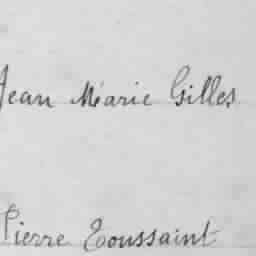 Jean Marie Gilles
Pierre Toussaint